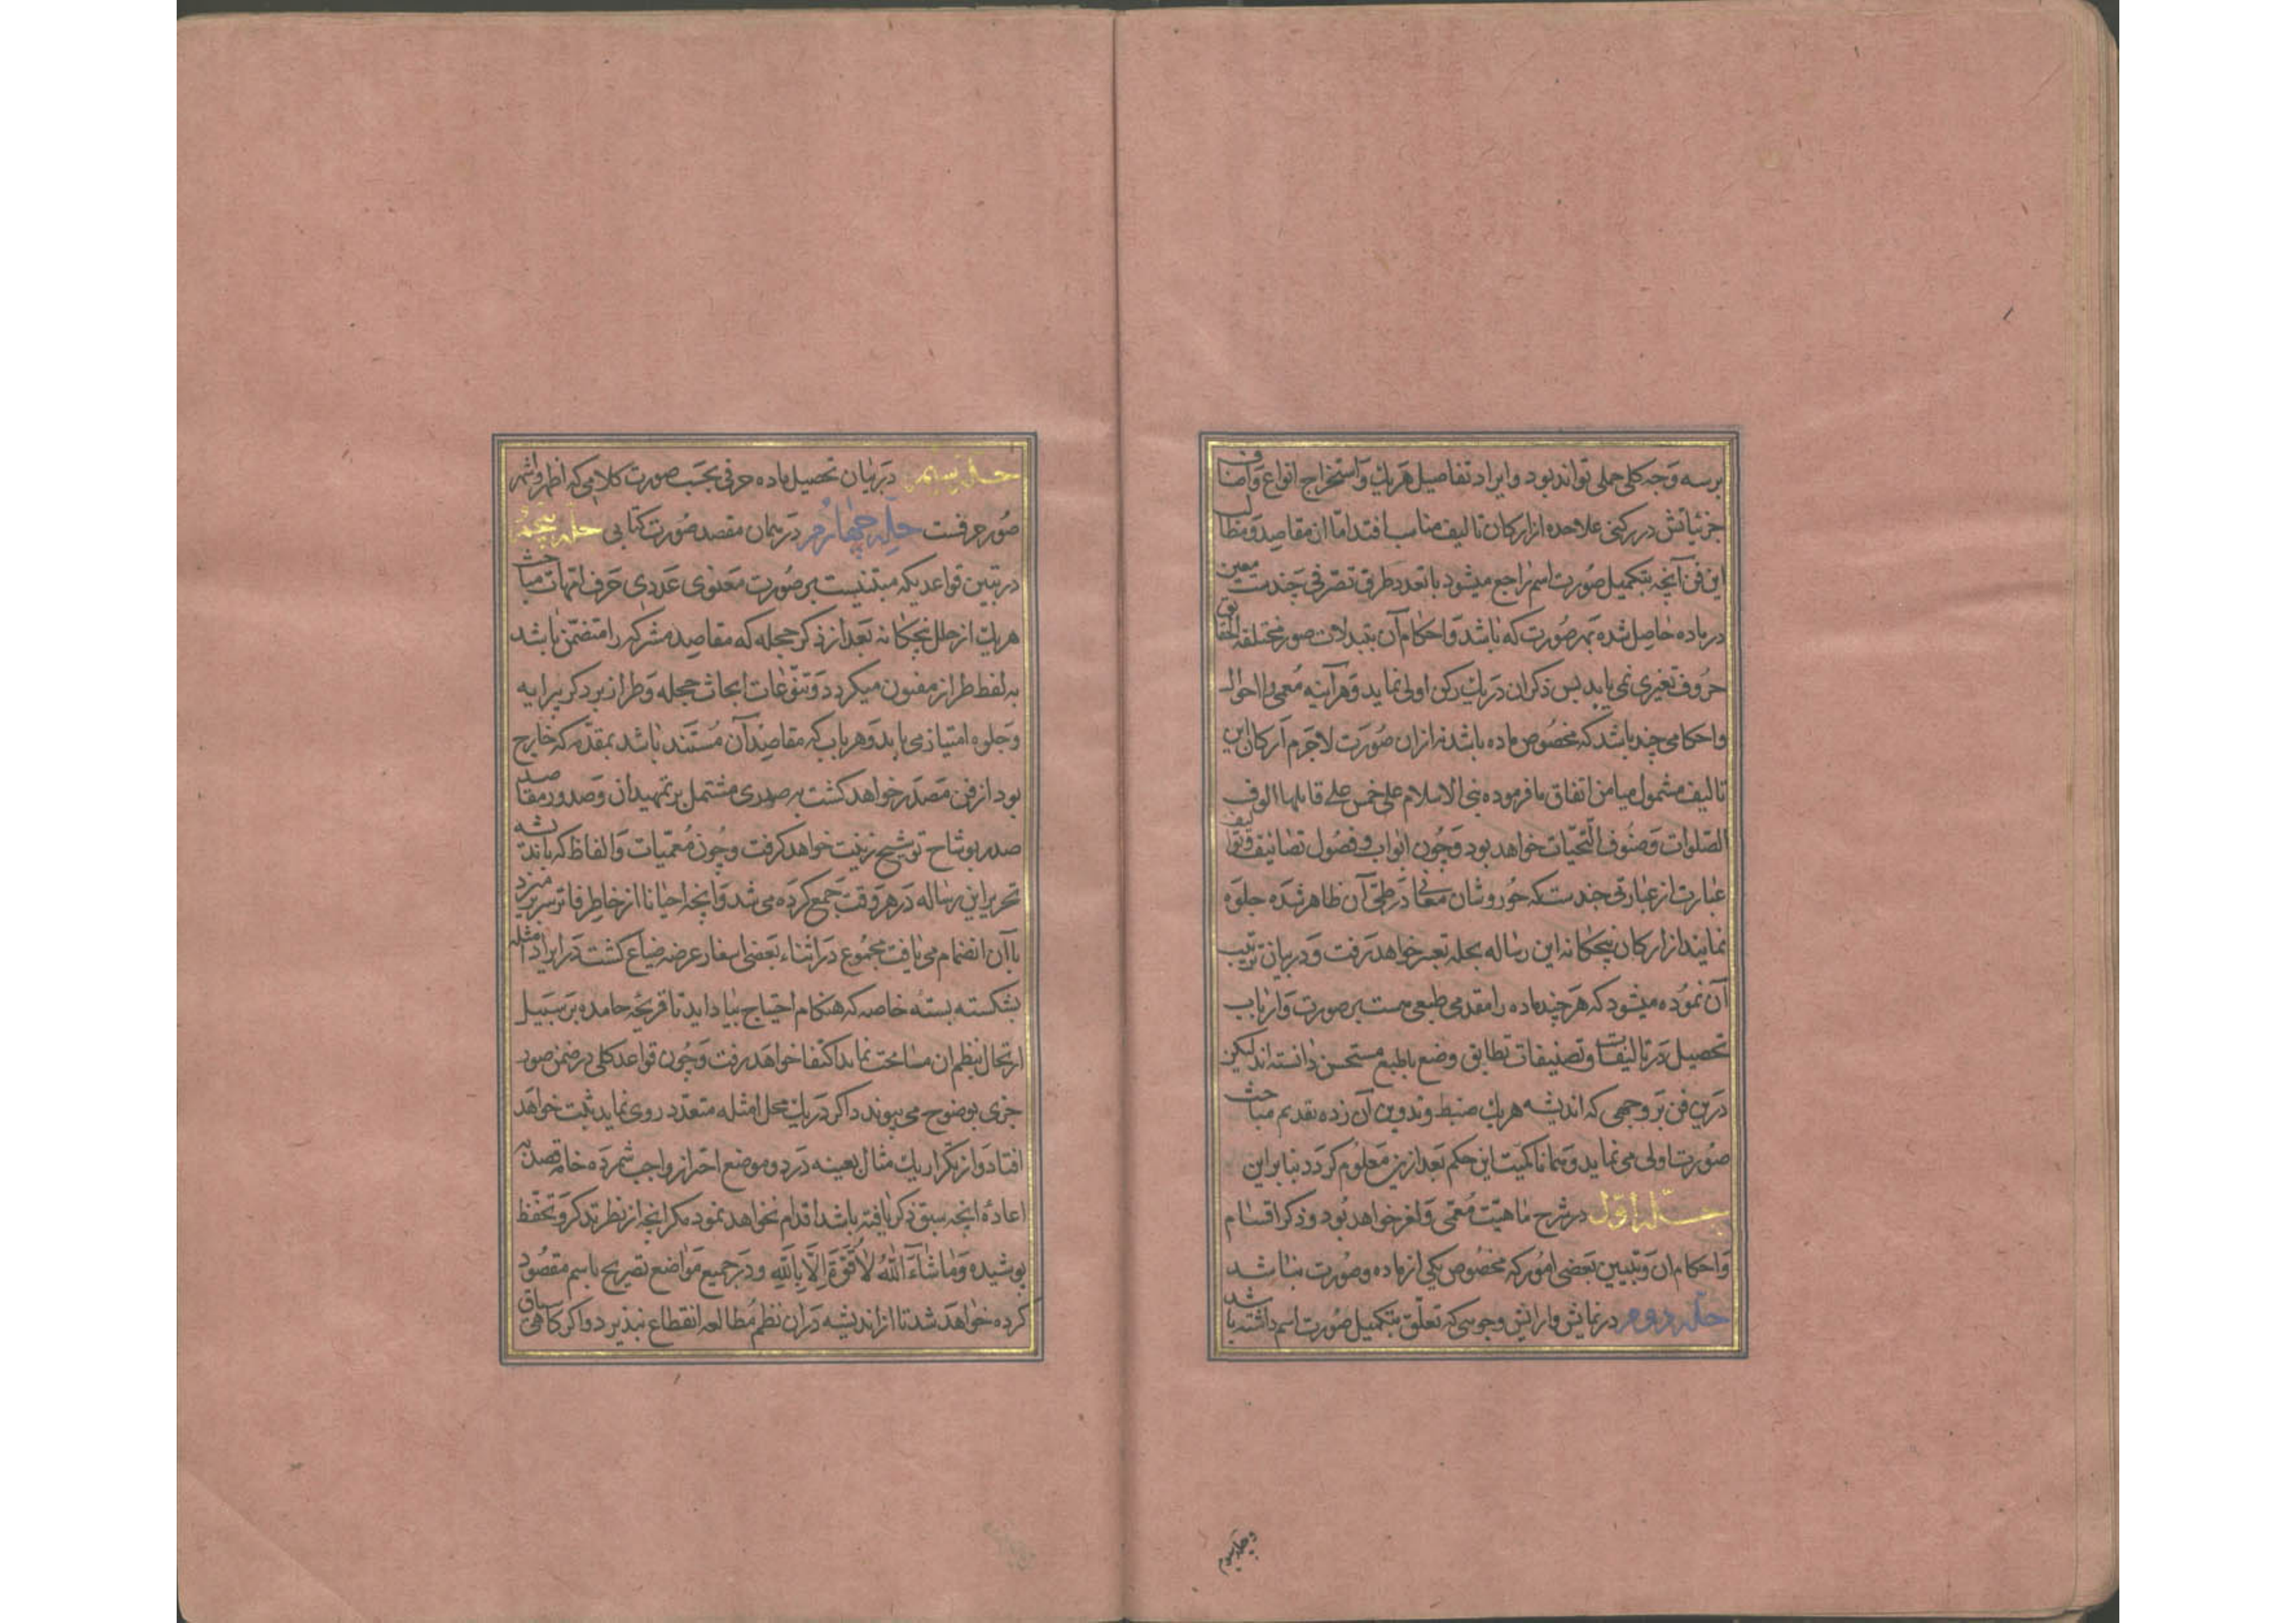 برسه وجه کلی جملی تواند بود و ایراد تفاصیل هریك و استخراج انواع و اصناف
جزئیاتش در رکنی علاحده از ارکان تالیف مناسب افتد اما ان مقاصد و مطالب
این فن آنچه بتکمیل صورت اسم راجع میشود با تعدد طرق تصرفی چندست معین
در ماده حاصل شده بهر صورت که باشد و احکام آن بتبدلات صور مختلفه الحقایق
حروف تغیری نمی یابد پس ذکر ان در یك رکن اولی نماید و هرآینه معمی را احوال
و احکامی چند باشد که مخصوص ماده باشد نه از ان صورت لاجرم ارکان این
تالیف مشمول میامن اتفاق بافرموده بنی الاسلام علی خمس علی قایلها الوف
الصلوات و صنوف التحیات خواهد بود و چون ابواب و فصول تصانیف و توالیف
عبارت از عبارتی چندست که حور وشان معانی در طی آن ظاهر شده جلوه
نمایند از ارکان پنجکانه این رساله بحله تعبیر خواهد رفت و در بیان ترتیب
آن نموده میشود که هر چند ماده را مقدمی طبعی هست بر صورت و ارباب
تحصیل در تالیفات و تصنیفات تطابق وضع با طبع مستحسن دانسته اند لیکن
درین فن بر وجهی که اندیشه هریك ضبط و تدوین آن زده تقدیم مباحث
صورت اولی می نماید و همانا کمیت این حکم بعد ازین معلوم کردد بنابراین
حله اول در شرح ماهیت معمی و لغز خواهد بود و ذکر اقسام
و احکام ان و تبیین بعضی امور که مخصوص یکی از ماده و صورت نباشد
حله دوم در نمایش و ارایش وجوهی که تعلق بتکمیل صورت اسم داشته باشد
و حله سیوم
حله سیم در بیان تحصیل ماده حرفی بحسب صورت کلامی که اظهر و اشهر
صور حرفست حله چهارم در همان مقصد صورت کتابی حله پنجم
در تبین قواعدیکه مبتنیست بر صورت معنوی عددی حرف امهات مباحث
هریك از حلل پنجکانه بعد از ذکر حجله که مقاصد مشترکه را متضمن باشد
به لفظ طراز مفنون میکردد و تنوعات ابحاث حجله و طراز بر ذکر پیرایه
و جلوه امتیاز می یابد و هر باب که مقاصد آن مستند باشد بمقدمه که خارج
بود از فن مصدر خواهد کشت به صدری مشتمل بر تمهید ان و صدور مقاصد
صدر بوشاح توشیح زینت خواهد کرفت و چون معمیات و الفاظ که باندیشه
تحریر این رساله در هر وقت جمع کرده می شد و انچه احیانا از خاطر فاتر سر بر میزد
با آن انضمام می یافت مجموع در اثناء بعضی اسفار عرضه ضیاع کشت در ایراد امثله
بشکسته بسته خاصه که هنکام احتیاج بیاد اید تا قریحه جامده بر سبیل
ارتجال بنظم ان مسامحت نماید اکتفا خواهد رفت و چون قواعد کلی در ضمن صور
جزی بوضوح می پیوندد اکر در یك محل امثله متعدد روی نماید ثبت خواهد
افتاد و از تکرار یك مثال بعینه در دو موضع احتراز واجب شمرده خامه قصد به
اعاده انچه سبق ذکر یافته باشد اقدام نخواهد نمود مکر انچه از نظر تذکر و تحفظ
پوشیده و ماشاء الله لا قوة الا بالله و در جمیع مواضع تصریح باسم مقصود
کرده خواهد شد تا از اندیشه دران نظم مطالعه انقطاع نپذیرد و اکر کاهی سیاق